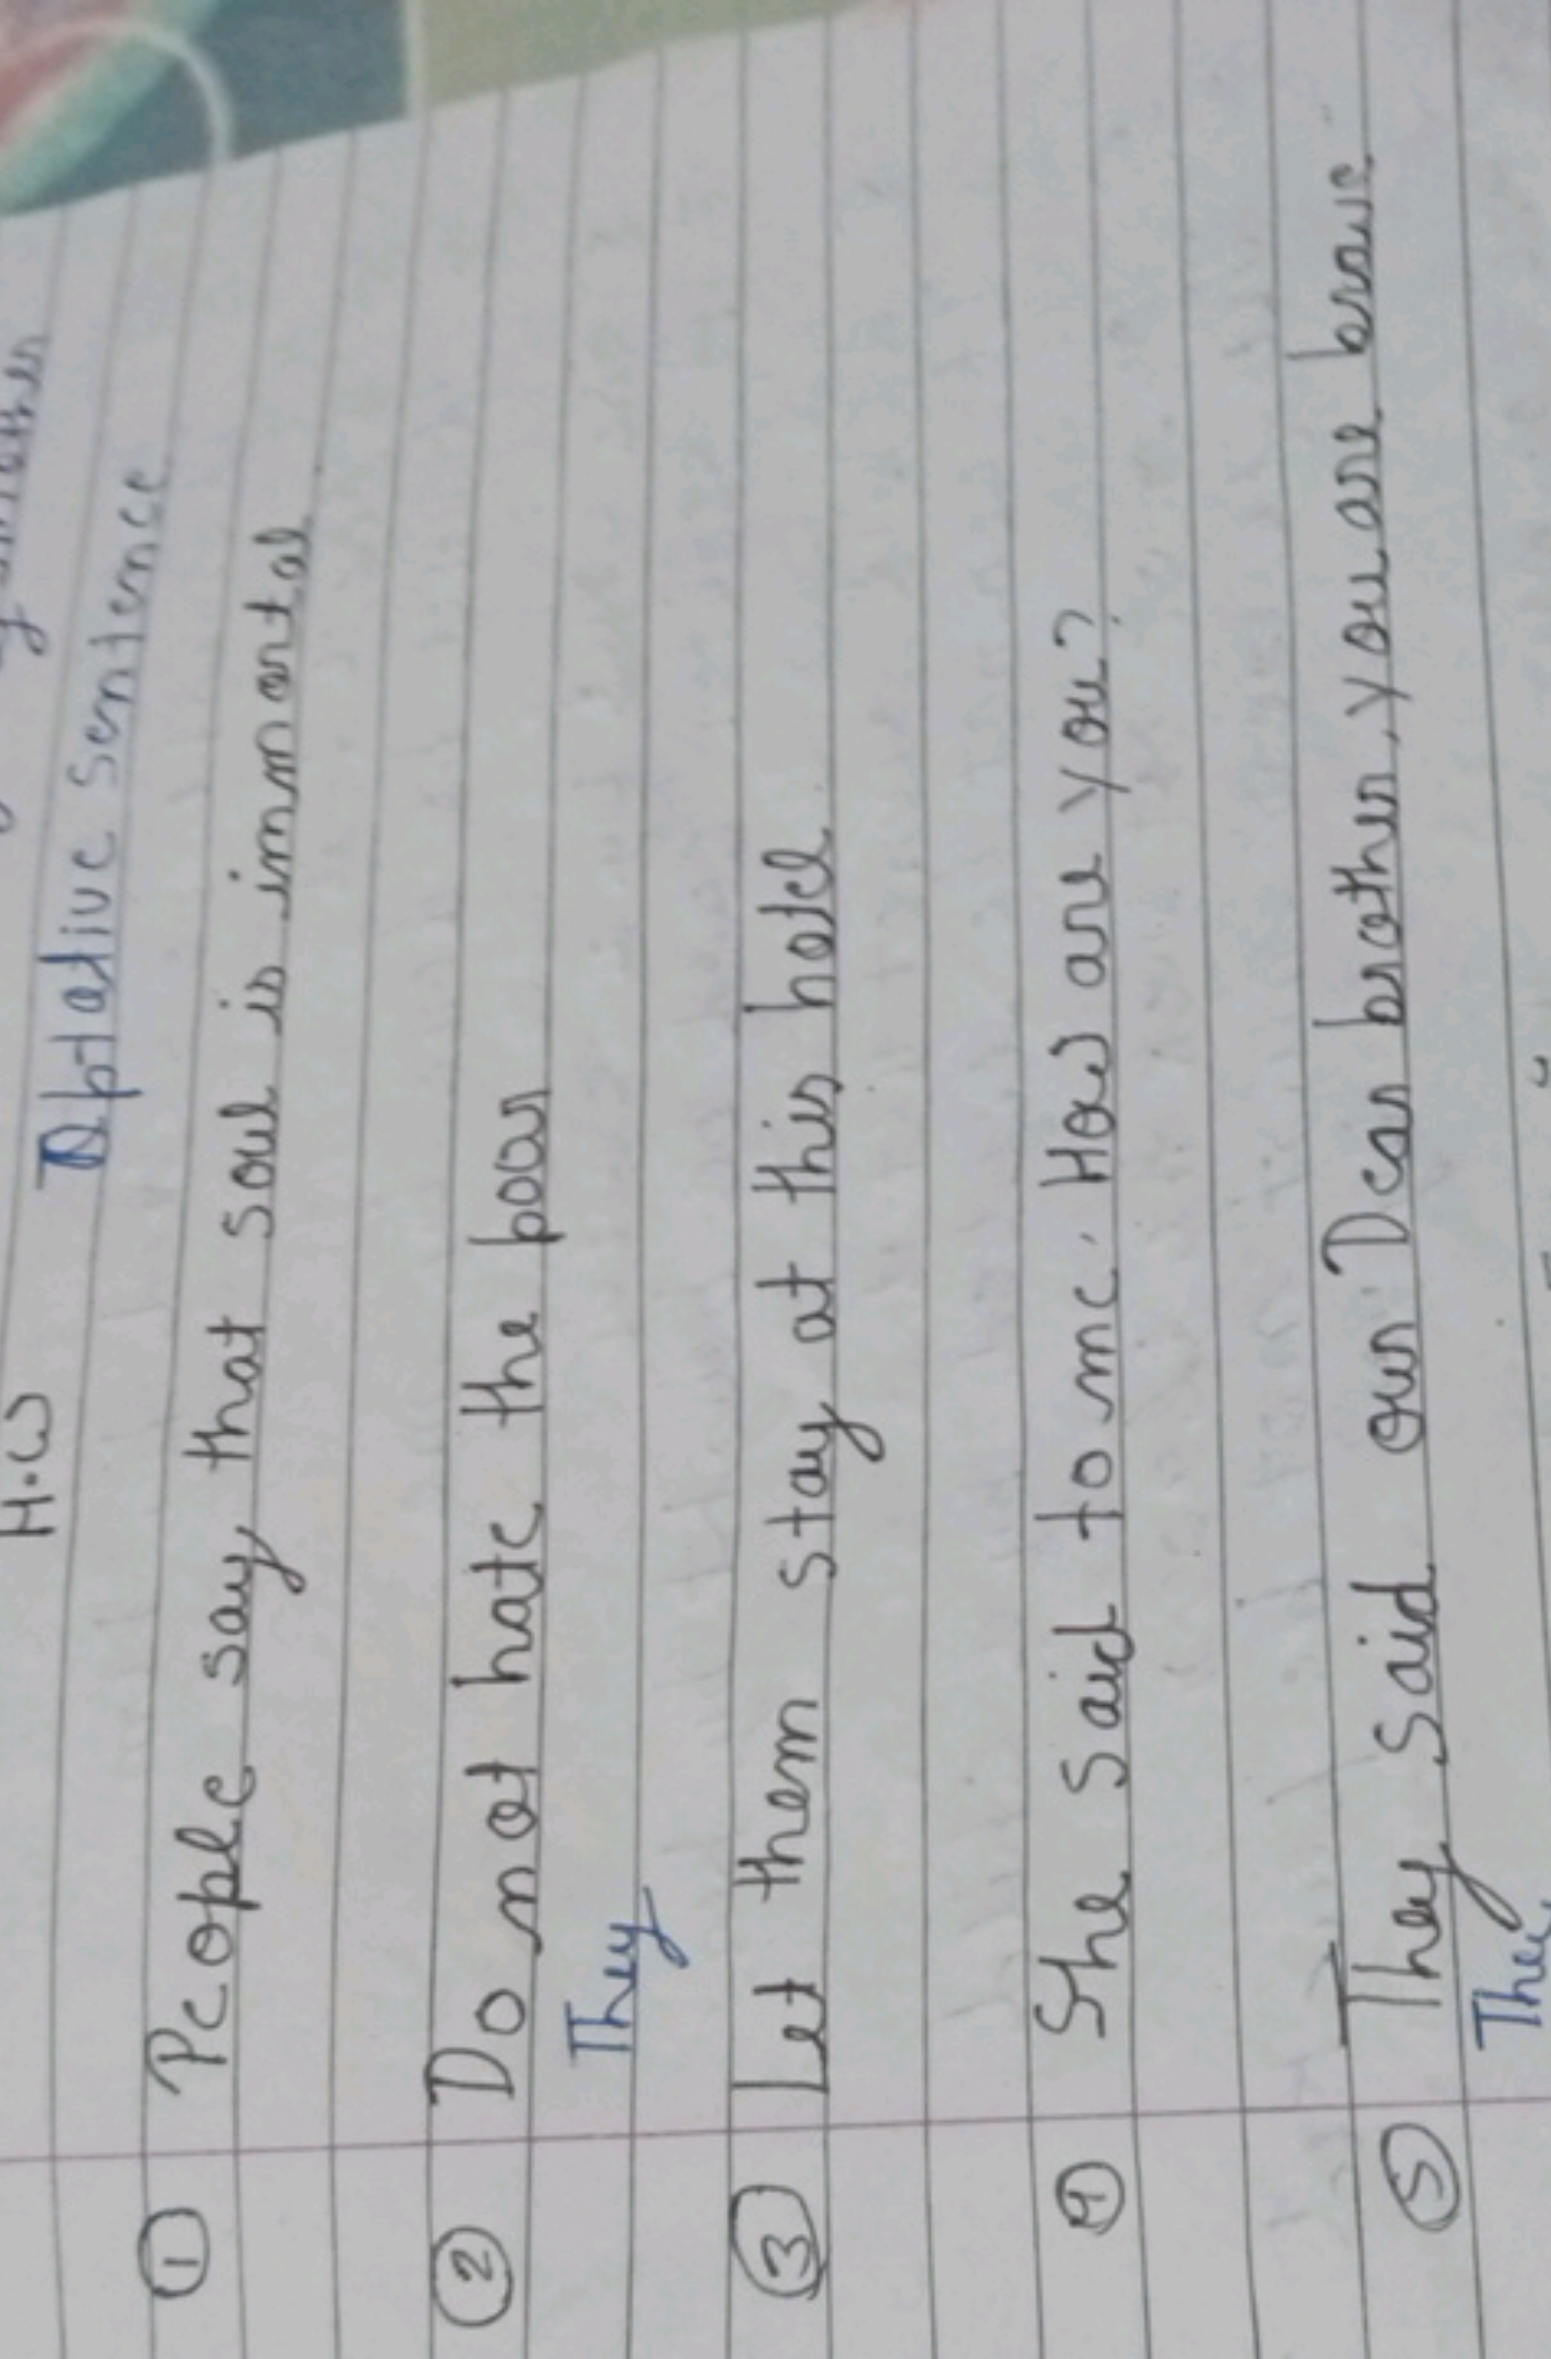 H.W
Optative sentence
① People say that soul is immortal
② Do not hate the poor
They
③ Let them stay at this hotel
④ She said to me, How are you?
⑤ They said our Dear brother, you are brave